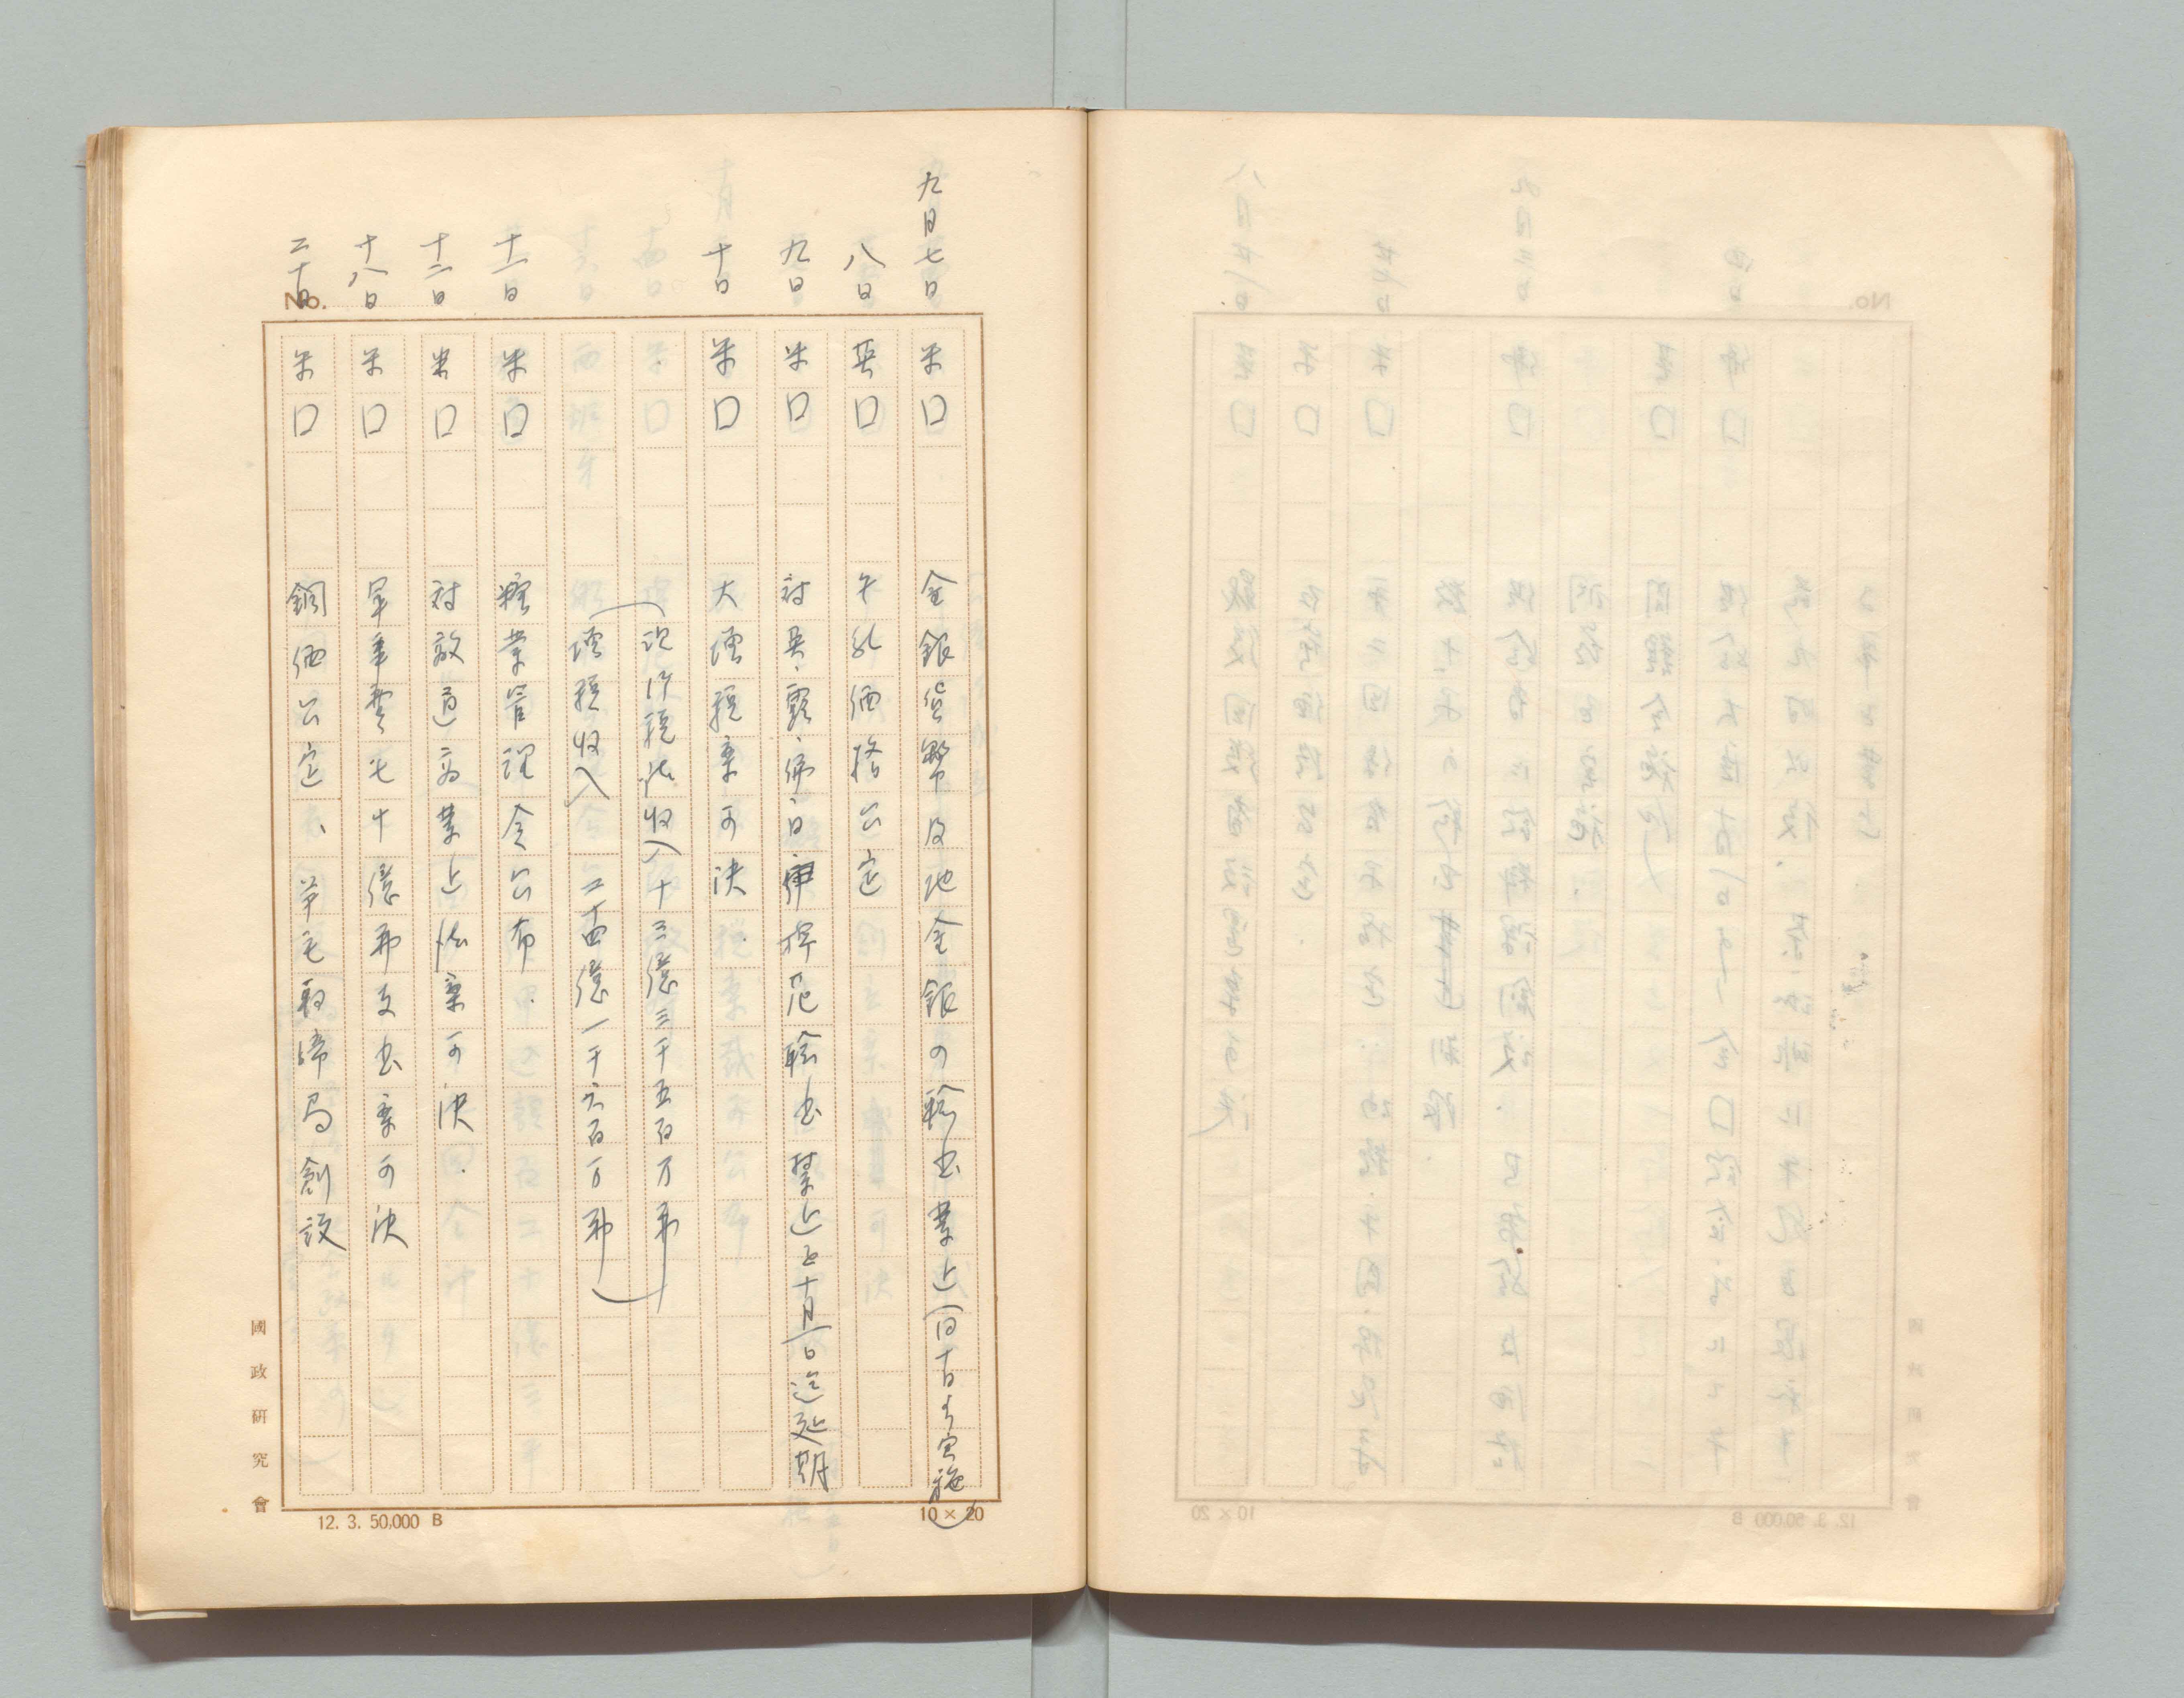 九月七日 米囗 金銀貨幣及地金銀の輸出禁止(同十日より実施)
八日 英囗 牛乳価格公定
九日 米囗 対英、露、佛、白 輸出禁止を十月一日迄延期
十日 米囗 大増税案可決
現行税法収入十三億三千五百万弗
増税収入 二十四億一千六百万弗
十一日 米囗 糖業管理令公布
十二日 米囗 対敵通商禁止法案可決.
十八日 米囗 軍事費七十億弗支出案可決
二十日 米囗 銅価公定、羊毛取締局創設
No.
國政研究會
12. 3. 50,000 B
10 × 20